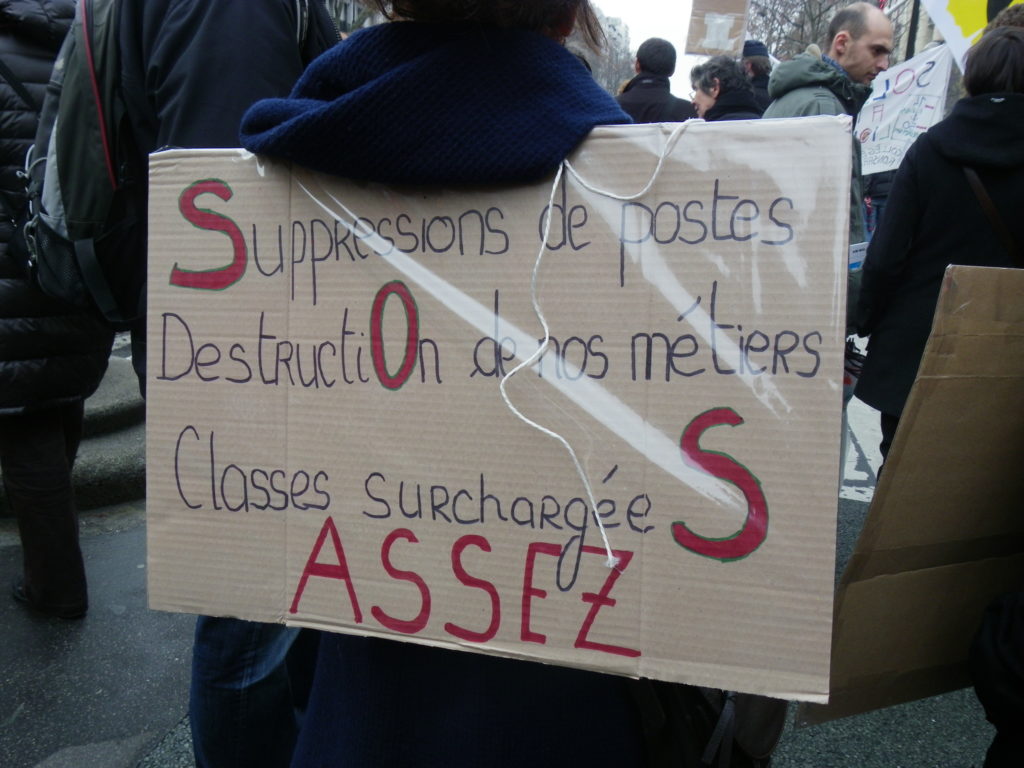 Suppressions de postes
DestructiOn de nos métiers
Classes surchargéeS
ASSEZ